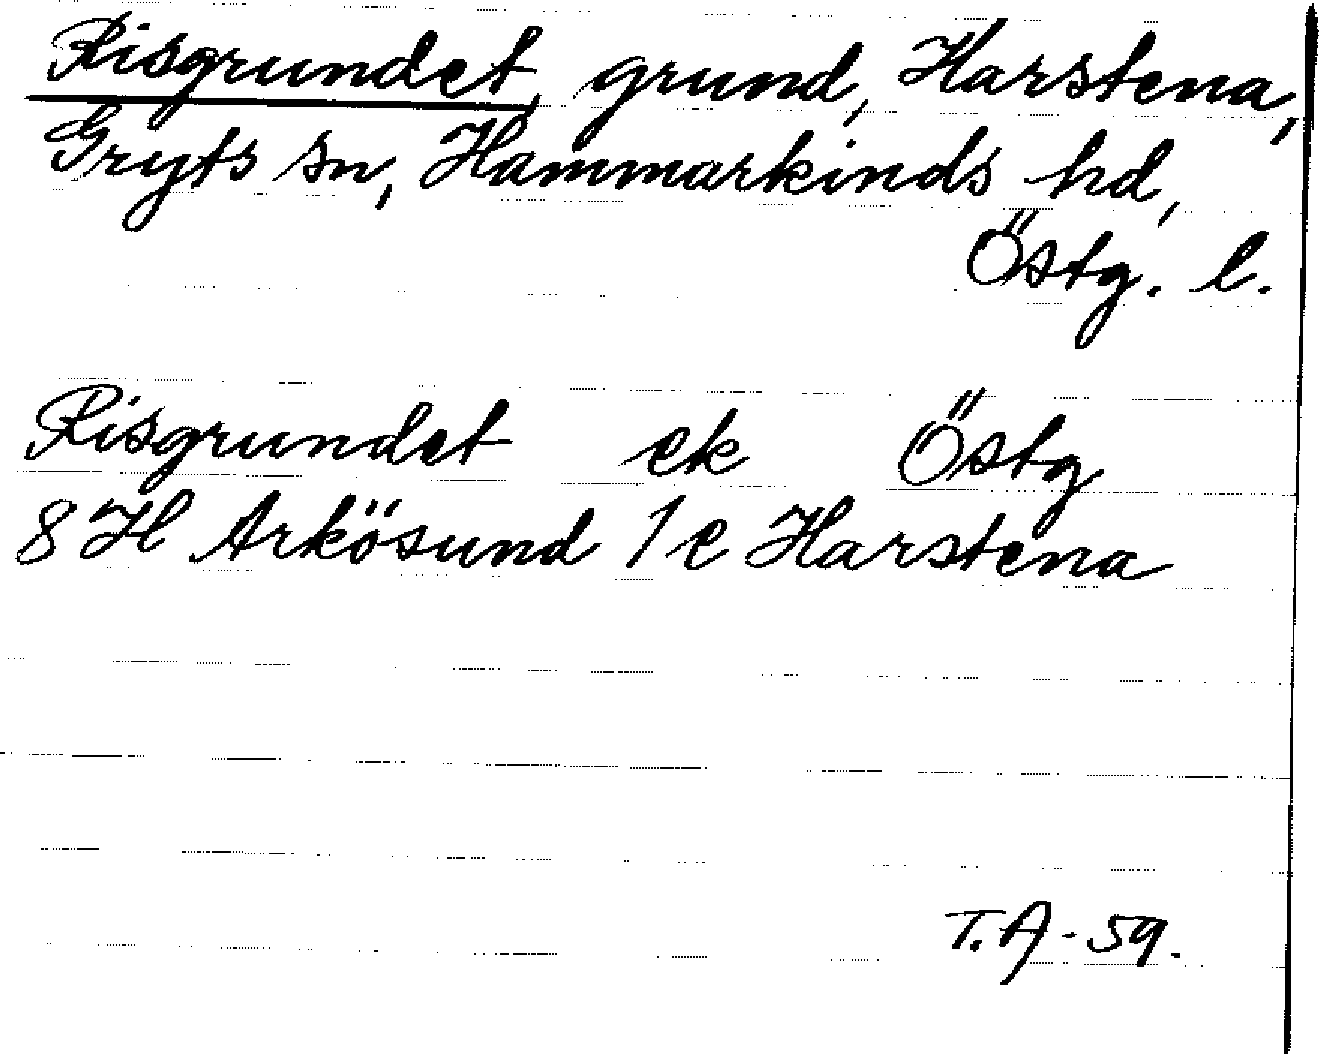 Risgrundet, grund, Harstena,
Gryts sn, Hammarkinds hd,
Östg. l.
Risgrundet ek Östg
8 H Arkösund 1 e Harstena
T.A-59.